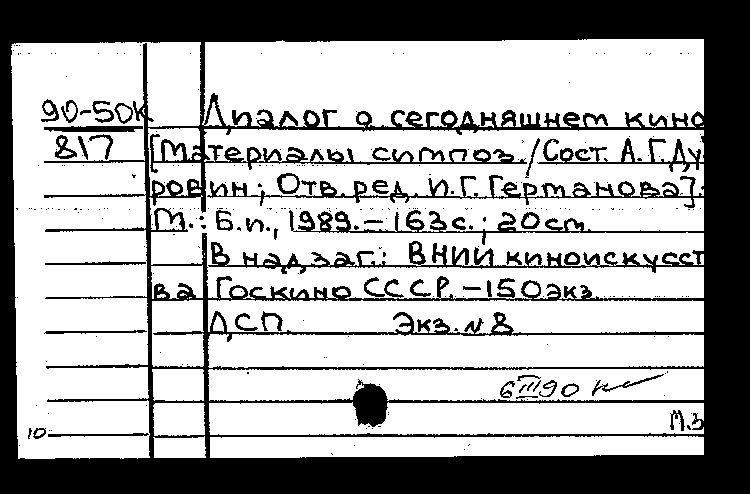 90-50К Диалог о сегодняшнем кино
817 [Материалы симпоз./Сост. А.Г.Ду
ровин; Отв. ред. И.Г. Германова].-
М.: Б.и., 1989. – 163 с.; 20 см.
В надзаг.: ВНИИ киноискусст
ва Госкино СССР. – 150 экз.
ДСП. Экз. № 8
6 III 90
М.З
10